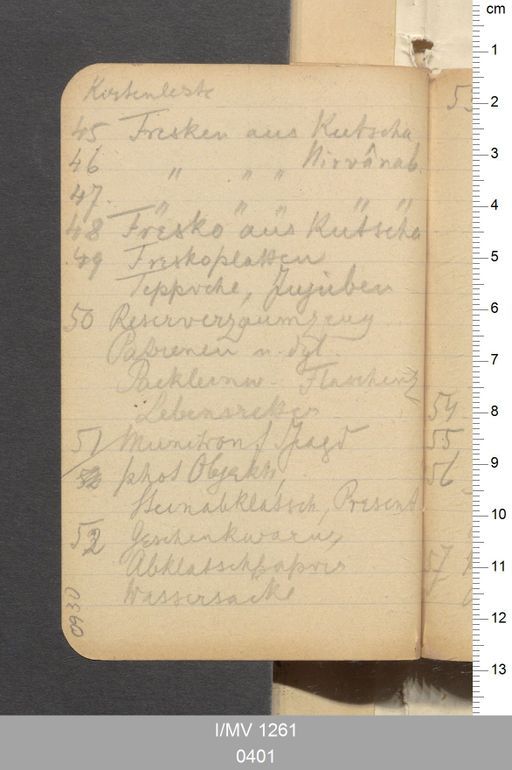 Kistenliste
45 Fresken aus Kutscha
46 " " " Nirvânah.
47. " " " " "
48 Fresko aus Kutscha
49 Freskoplatten
Teppiche, Jujuben
50 Reserverzaumzeug
u. dgl.
Flaschen
51 Munition f. Jagd
52 phot Objekt,
Steinabklatsch, Present
52 Geschenkwaren
Abklatschpapier
Wassersäcke
0930
53
54
55
56
57
cm
1
2
3
4
5
6
7
8
9
10
11
12
13
I/MV 1261
0401